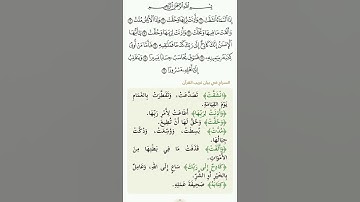 بِسْمِ اللَّهِ الرَّحْمَٰنِ الرَّحِيمِ
إِذَا السَّمَاءُ انشَقَّتْ ١ وَأَذِنَتْ لِرَبِّهَا وَحُقَّتْ ٢ وَإِذَا الْأَرْضُ مُدَّتْ ٣
وَأَلْقَتْ مَا فِيهَا وَتَخَلَّتْ ٤ وَأَذِنَتْ لِرَبِّهَا وَحُقَّتْ ٥ يَا أَيُّهَا
الْإِنسَانُ إِنَّكَ كَادِحٌ إِلَىٰ رَبِّكَ كَدْحًا فَمُلَاقِيهِ ٦ فَأَمَّا مَنْ أُوتِيَ
كِتَابَهُ بِيَمِينِهِ ٧ فَسَوْفَ يُحَاسَبُ حِسَابًا يَسِيرًا ٨ وَيَنقَلِبُ
إِلَىٰ أَهْلِهِ مَسْرُورًا ٩
السراج في بيان غريب القرآن
﴿انشَقَّتْ﴾ تَصَدَّعَتْ، وَتَفَطَّرَتْ بِالْغَمَامِ
يَوْمَ الْقِيَامَةِ.
﴿وَأَذِنَتْ لِرَبِّهَا﴾ أَطَاعَتْ لِأَمْرِ رَبِّهَا.
﴿وَحُقَّتْ﴾ وَحُقَّ لَهَا أَنْ تُطِيعَ.
﴿مُدَّتْ﴾ بُسِطَتْ، وَوُسِّعَتْ، وَدُكَّتْ
جِبَالُهَا.
﴿وَأَلْقَتْ﴾ قَذَفَتْ مَا فِي بَطْنِهَا مِنَ
الْأَمْوَاتِ.
﴿كَادِحٌ إِلَى رَبِّكَ﴾ سَاعٍ إِلَى اللَّهِ، وَعَامِلٌ
بِالْخَيْرِ أَوِ الشَّرِّ.
﴿كِتَابَهُ﴾ صَحِيفَةَ عَمَلِهِ.